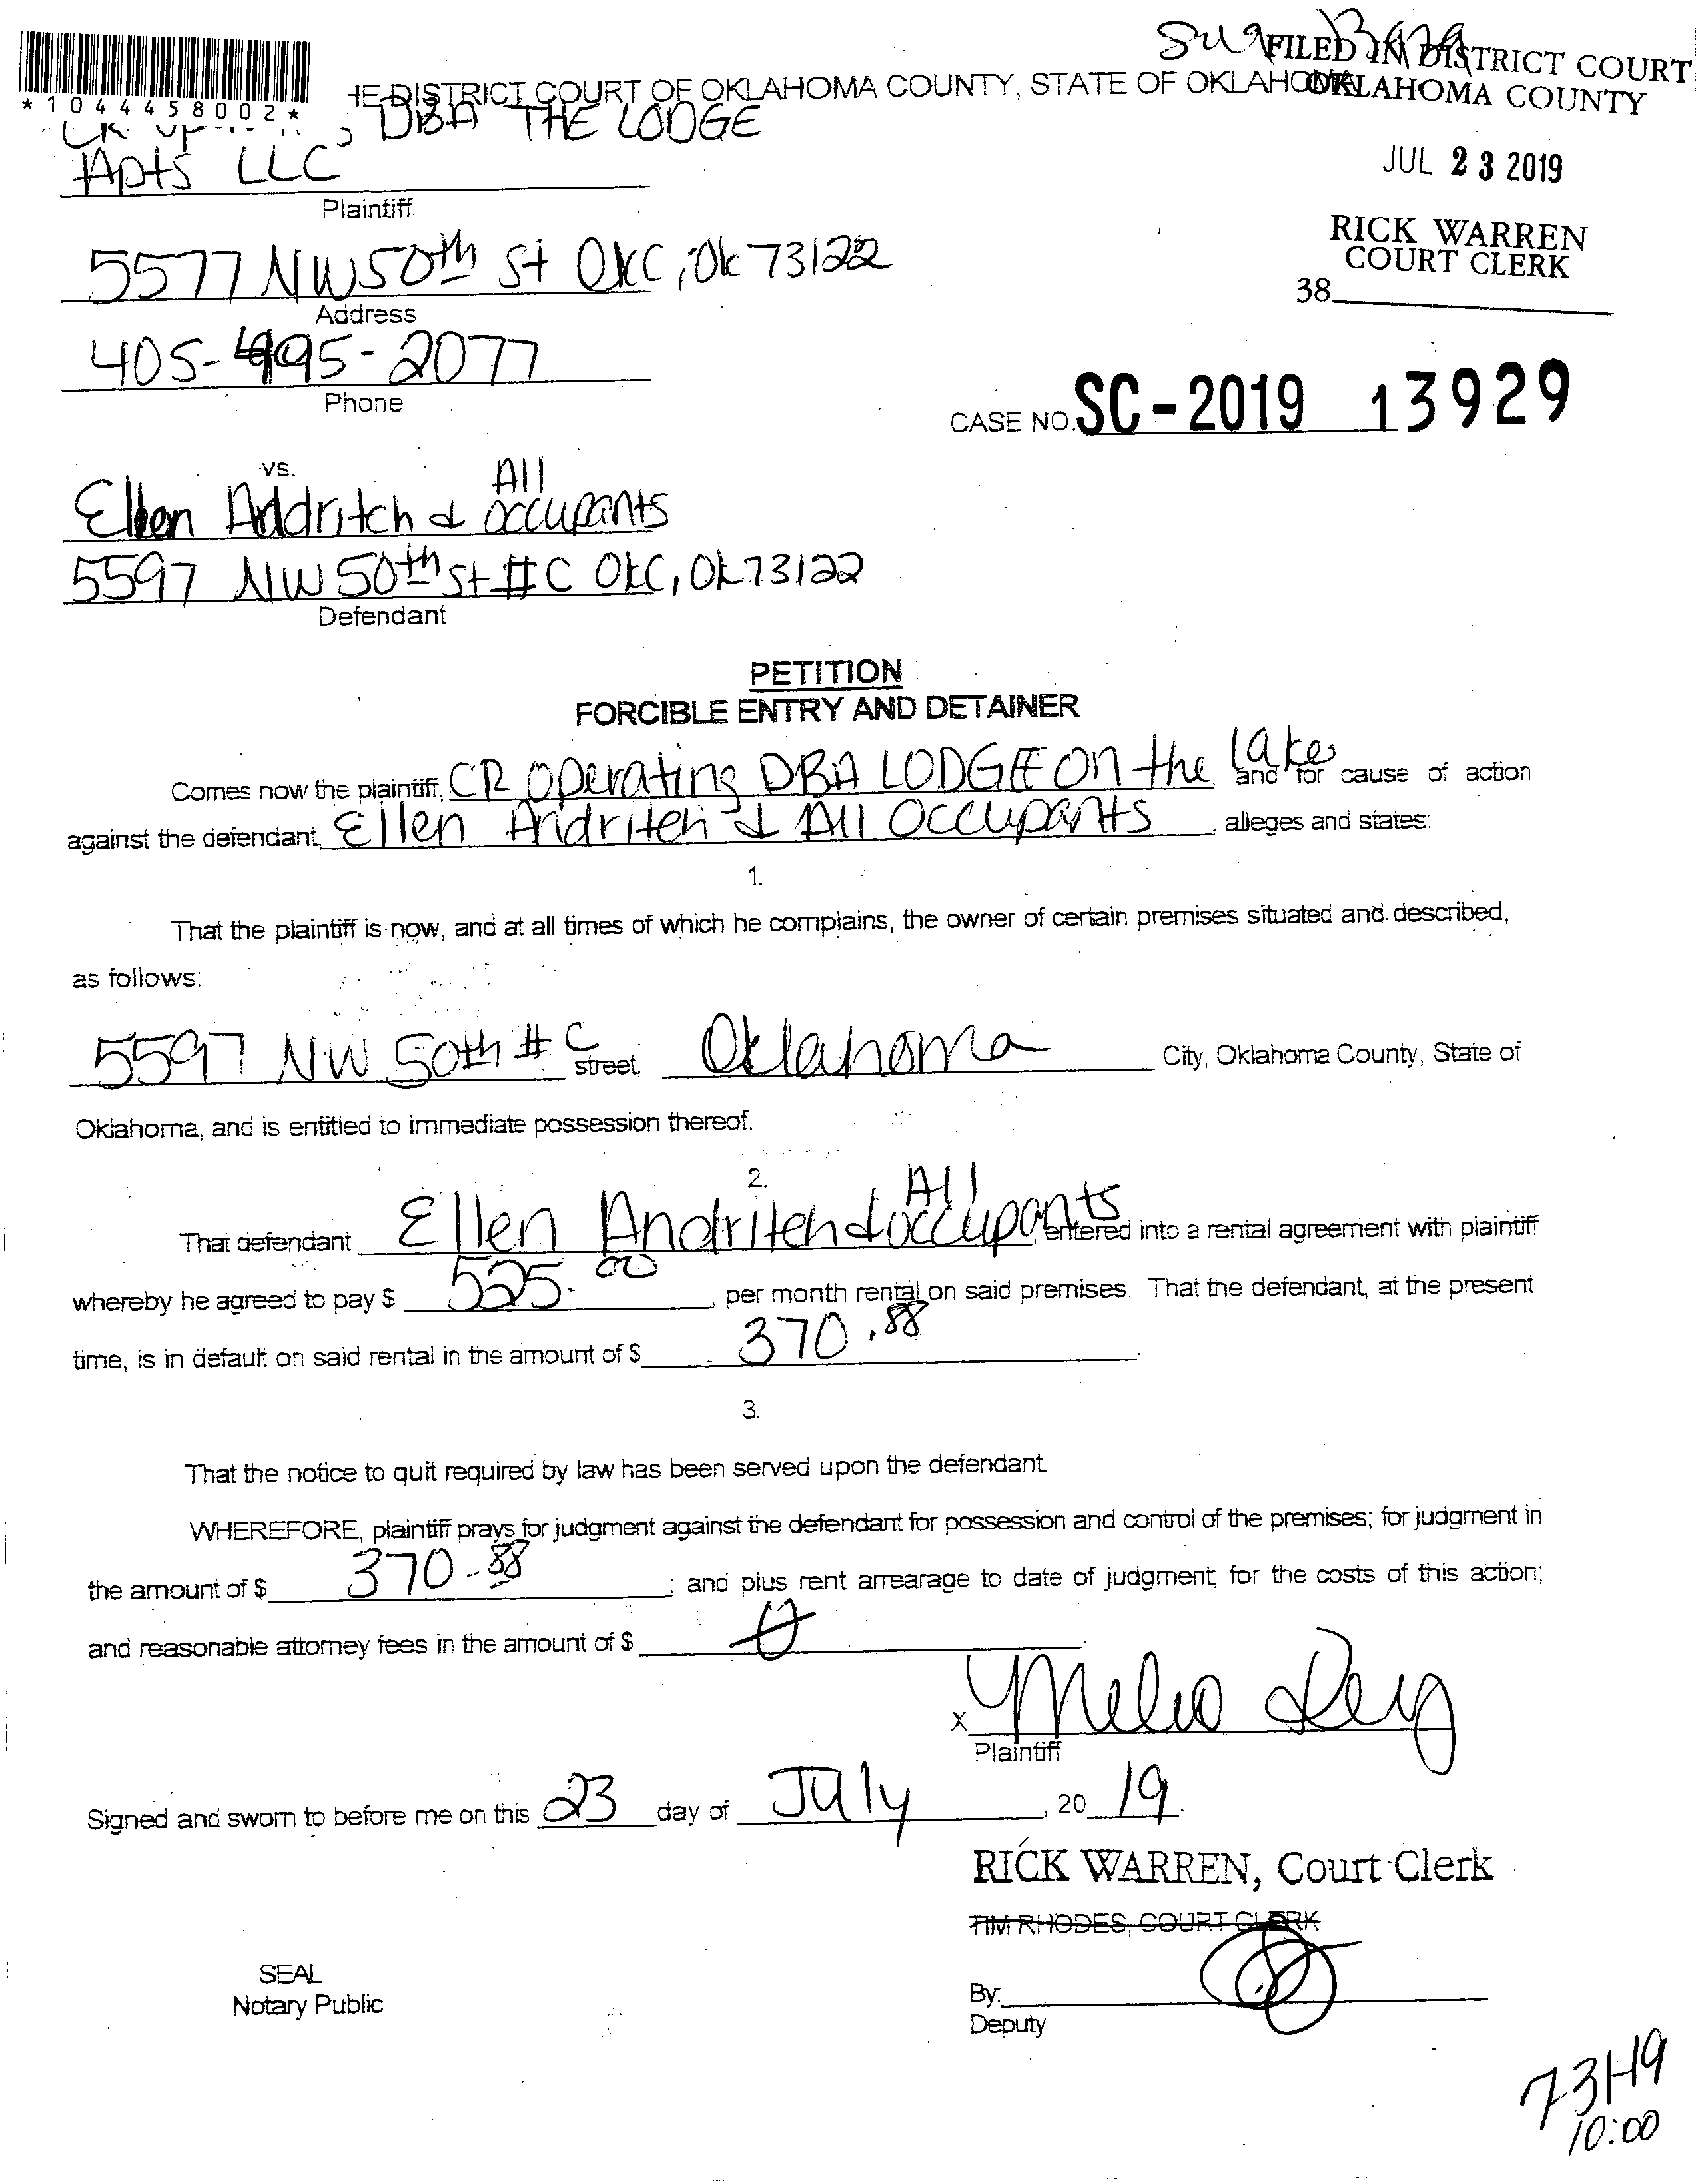 FILED IN DISTRICT COURT
OKLAHOMA COUNTY
*1044458002*
HE DISTRICT COURT OF OKLAHOMA COUNTY, STATE OF OKLAHOMA
DBA THE LODGE
Apts LLC
Plaintiff
JUL 23 2019
RICK WARREN
COURT CLERK
38
5577 NW 50th St OKC, Ok 73122
Address
405-495-2077
Phone
CASE NO. SC-2019 13929
vs.
All
Ellen Addritch & occupants
5597 NW 50th St #C OKC, OK 73122
Defendant
PETITION
FORCIBLE ENTRY AND DETAINER
Comes now the plaintiff, CR Operating DBA LODGE On the lake and for cause of action
against the defendant, Ellen Andritch & All Occupants, alleges and states:
1.
That the plaintiff is now, and at all times of which he complains, the owner of certain premises situated and described,
as follows:
5597 NW 50th # C street, Oklahoma City, Oklahoma County, State of
Oklahoma, and is entitled to immediate possession thereof.
2.
That defendant Ellen Andritch & All occupants entered into a rental agreement with plaintiff
whereby he agreed to pay $ 525.00, per month rental on said premises. That the defendant, at the present
time, is in default on said rental in the amount of $ 370.88.
3.
That the notice to quit required by law has been served upon the defendant.
WHEREFORE, plaintiff prays for judgment against the defendant for possession and control of the premises; for judgment in
the amount of $ 370.88; and plus rent arrearage to date of judgment, for the costs of this action;
and reasonable attorney fees in the amount of $ 0.
X
Plaintiff
Signed and sworn to before me on this 23 day of July, 2019.
RICK WARREN, Court Clerk
TIM RHODES, COURT CLERK
SEAL
Notary Public
By:
Deputy
7-31-19
10:00